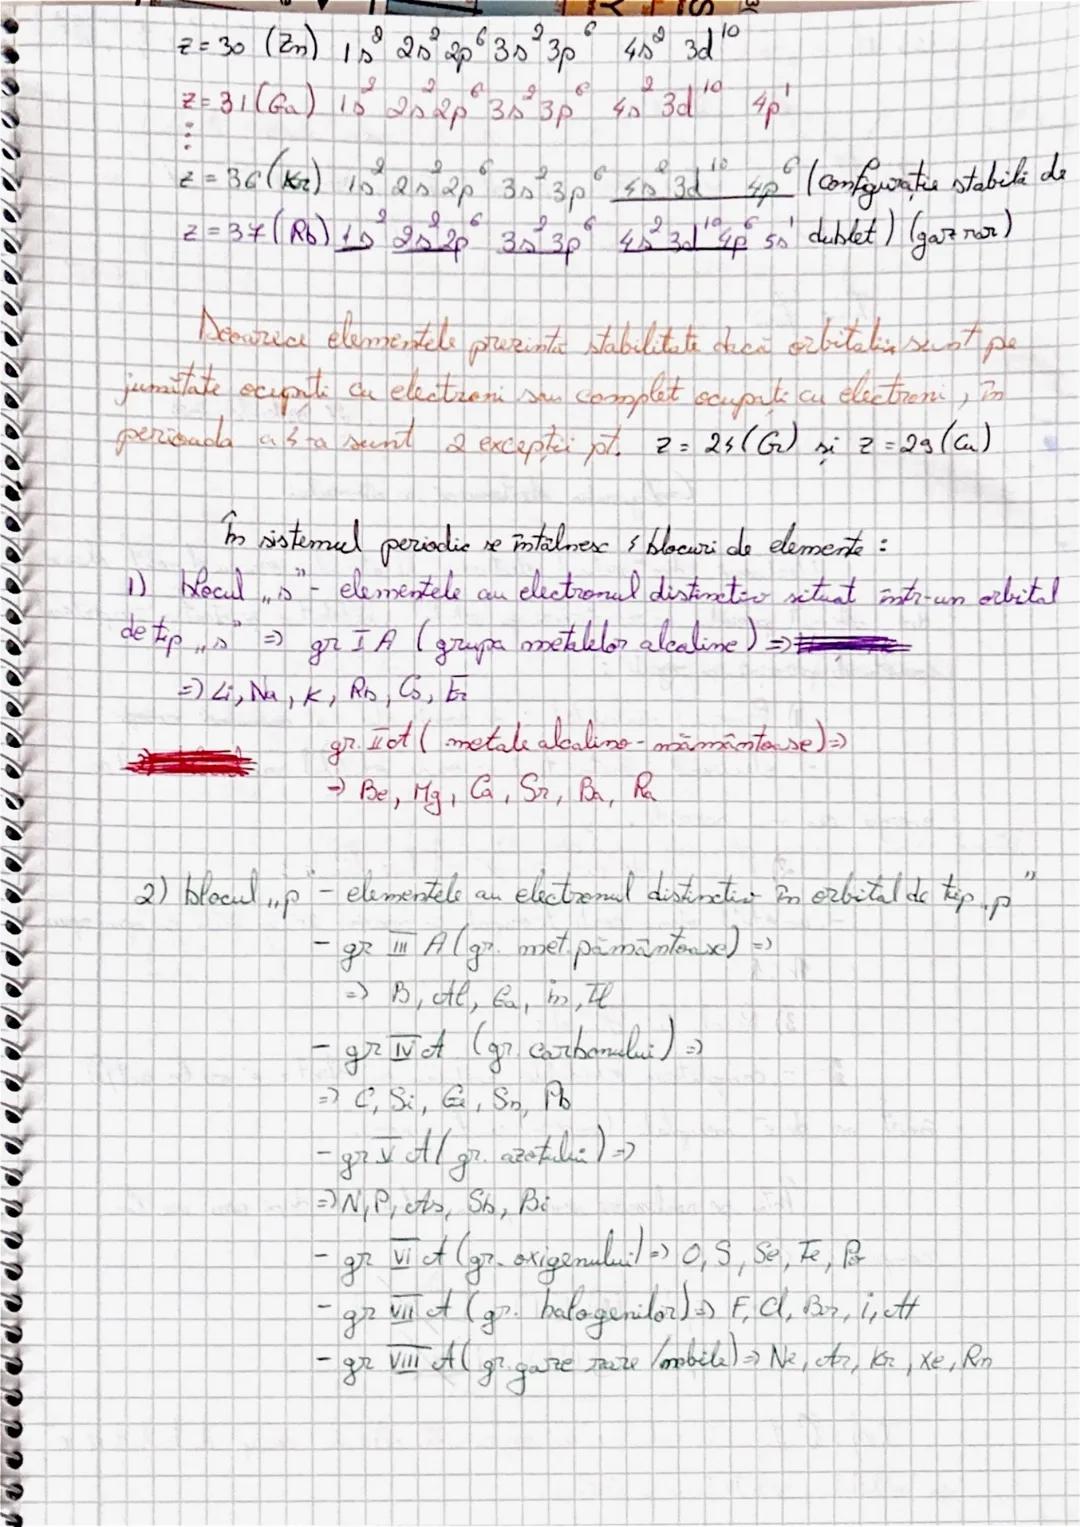 z=30 (Zn) 1s² 2s² 2p⁶ 3s² 3p⁶ 4s² 3d¹⁰
z=31 (Ga) 1s² 2s² 2p⁶ 3s² 3p⁶ 4s² 3d¹⁰ 4p¹
⋮
z=36 (Kr) 1s² 2s² 2p⁶ 3s² 3p⁶ 4s² 3d¹⁰ 4p⁶ (configurație stabilă de
z=37 (Rb) 1s² 2s² 2p⁶ 3s² 3p⁶ 4s² 3d¹⁰ 4p⁶ 5s¹ dublet) (gaz rar)
Deoarece elementele prezintă stabilitate dacă orbitalii sunt pe
jumătate ocupați cu electroni sau complet ocupați cu electroni, în
perioada a 4-a sunt 2 excepții pt. z=24 (Cr) și z=29 (Cu)
În sistemul periodic se întâlnesc 4 blocuri de elemente:
1) blocul „s” - elementele au electronul distinctiv situat într-un orbital
de tip „s” => gr I A (grupa metalelor alcaline) =>
=> Li, Na, K, Rb, Cs, Fr
gr. II A (metale alcalino-pământoase) =>
=> Be, Mg, Ca, Sr, Ba, Ra
2) blocul „p” - elementele au electronul distinctiv în orbital de tip „p”
- gr III A (gr. met. pământoase) =>
=> B, Al, Ga, in, Tl
- gr IV A (gr. carbonului) =>
=> C, Si, Ge, Sn, Pb
- gr V A (gr. azotului) =>
=> N, P, As, Sb, Bi
- gr VI A (gr. oxigenului) => O, S, Se, Te, Po
- gr VII A (gr. halogenilor) => F, Cl, Br, i, At
- gr VIII A (gr. gaze rare/nobile) => Ne, Ar, Kr, Xe, Rn